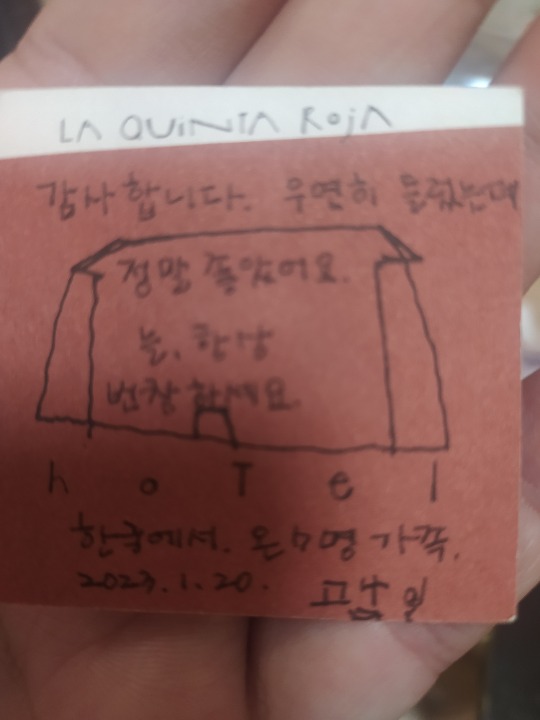 LA QUiNTA RojA
감사합니다. 우연히 들렀는데
정말 좋았어요.
늘, 항상
번창하세요.
hoTel
한국에서. 온 7명 가족.
2023.1.20.